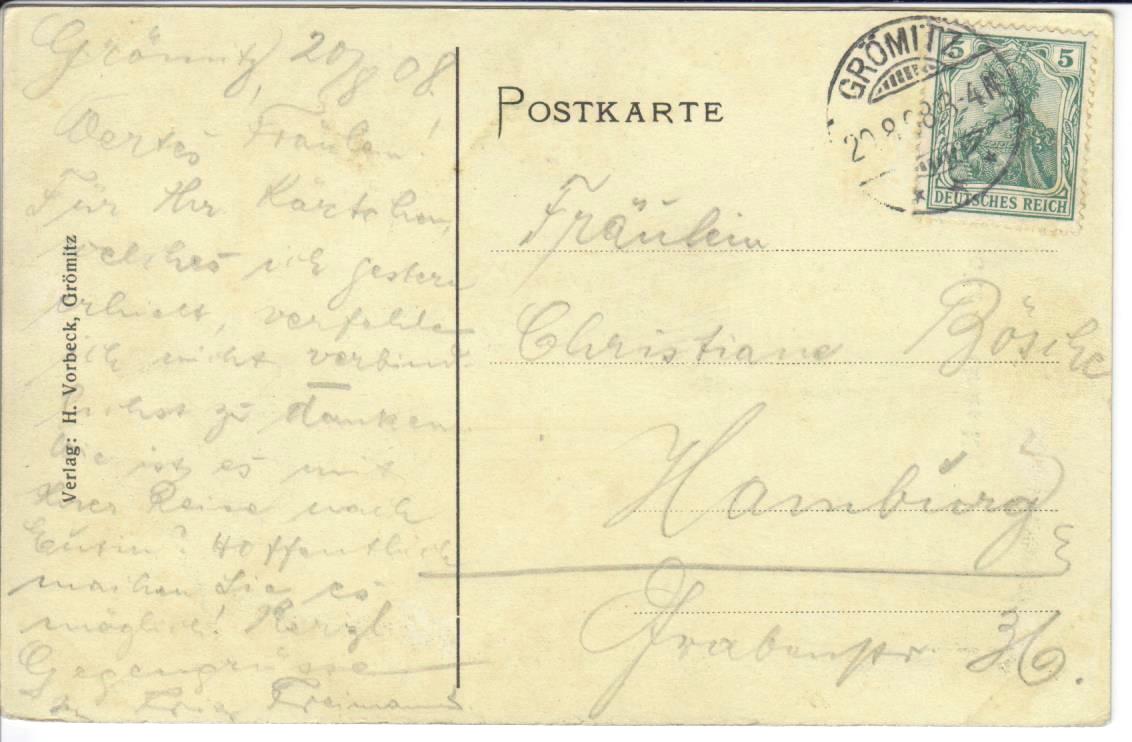 Grömitz, 20/8 08.
Wertes Fräulein!
Für Ihr Kärtchen,
welches ich gestern
erhielt, verfehle
ich nicht verbind-
lichst zu danken.
Wie ist es mit
Ihrer Reise nach
Eutin? Hoffentlich
machen Sie es
möglich! Herzl.
Gegengrüsse
Verlag: H. Vorbeck, Grömitz
POSTKARTE
GRÖMITZ
20.8.08 3-4N
5 5
DEUTSCHES REICH
Fräulein
Christiane Bösche
Hamburg
Grabenstr. 36.